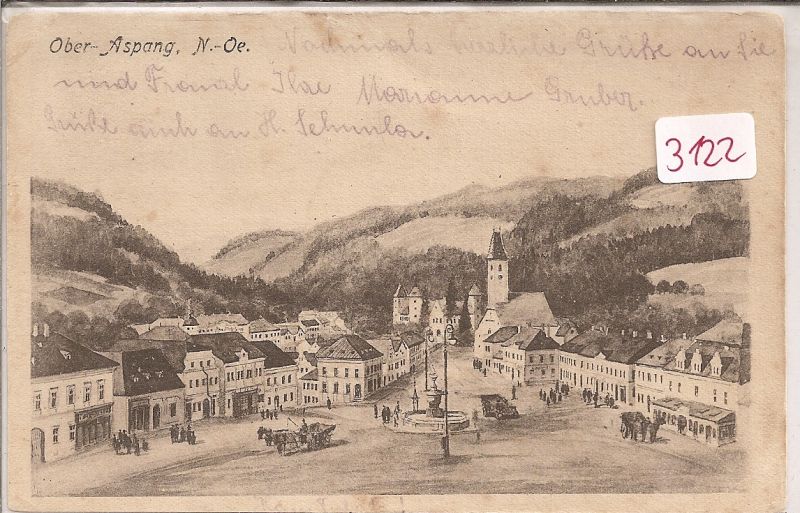 Ober-Aspang, N.-Oe.
Nochmals herzliche Grüße an Sie
und Frau Ilse Marianne Gruber.
Grüße auch an H.
3122